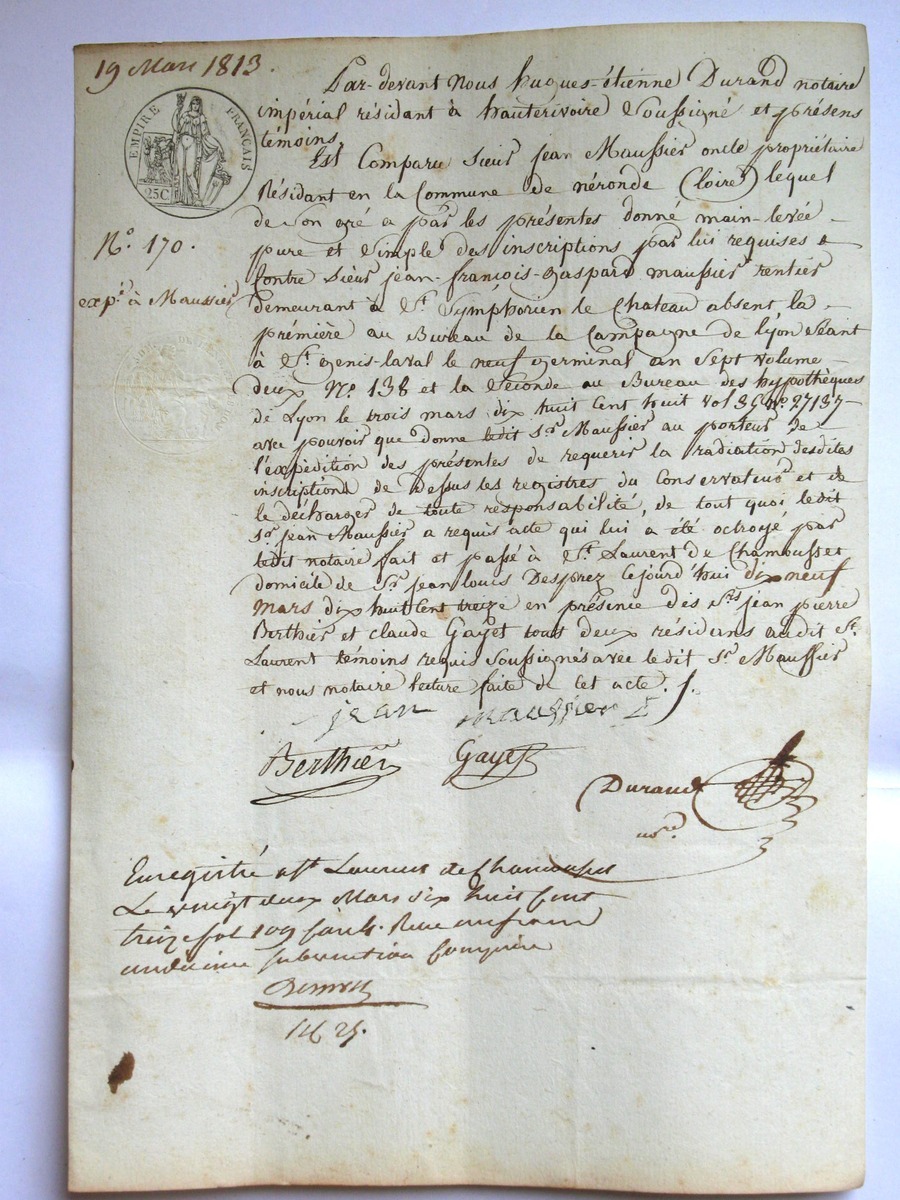 19 Mars 1813.
EMPIRE FRANÇAIS
25C
N°. 170.
exp.é à Maussier
Par-devant Nous hugues-étienne Durand notaire
impérial résidant à hauterivoire Soussigné et présens
témoins.
Est Comparu sieur jean Maussier oncle propriétaire
Résidant en la Commune de néronde (loire) lequel
de son gré a par les présentes donné main-levée
pure et simple des inscriptions par lui requises
Contre sieur jean-françois-gaspard maussier rentier
demeurant à St. Symphorien le Chateau absent la
prémière au Bureau de la Campagne de lyon séant
à St. genis-laval le neuf germinal an sept volume
deux N°. 138 et la seconde au Bureau des hypothèques
de Lyon le trois mars dix huit cent huit vol 36 n°. 27137
avec pouvoir que donne ledit sr. Maussier au porteur de
l'expédition des présentes de requerir la radiation desdites
inscriptions de dessus les registres du Conservateur et de
le décharger de toute responsabilité, de tout quoi ledit
sr. jean Maussier a requis acte qui lui a été octroyé par
ledit notaire fait et passé à St. Laurent de Chamousset
domicile de Sr. jean louis Desprez Cejourd'hui dix neuf
mars dix huit Cent treize en présence des Srs. jean pierre
Berthier et claude Gayet tous deux résidans audit St.
Laurent témoins requis Soussignés avec ledit Sr. Maussier
et nous notaire lecture faite de Cet acte.
jean maussier
Berthier Gayet
Durand
nore.
Enregistré a St. Laurent de Chamousset
Le vingt deux Mars dix huit cent
treize fol 109 Reçu un franc
subvention Comprise
1f 25.